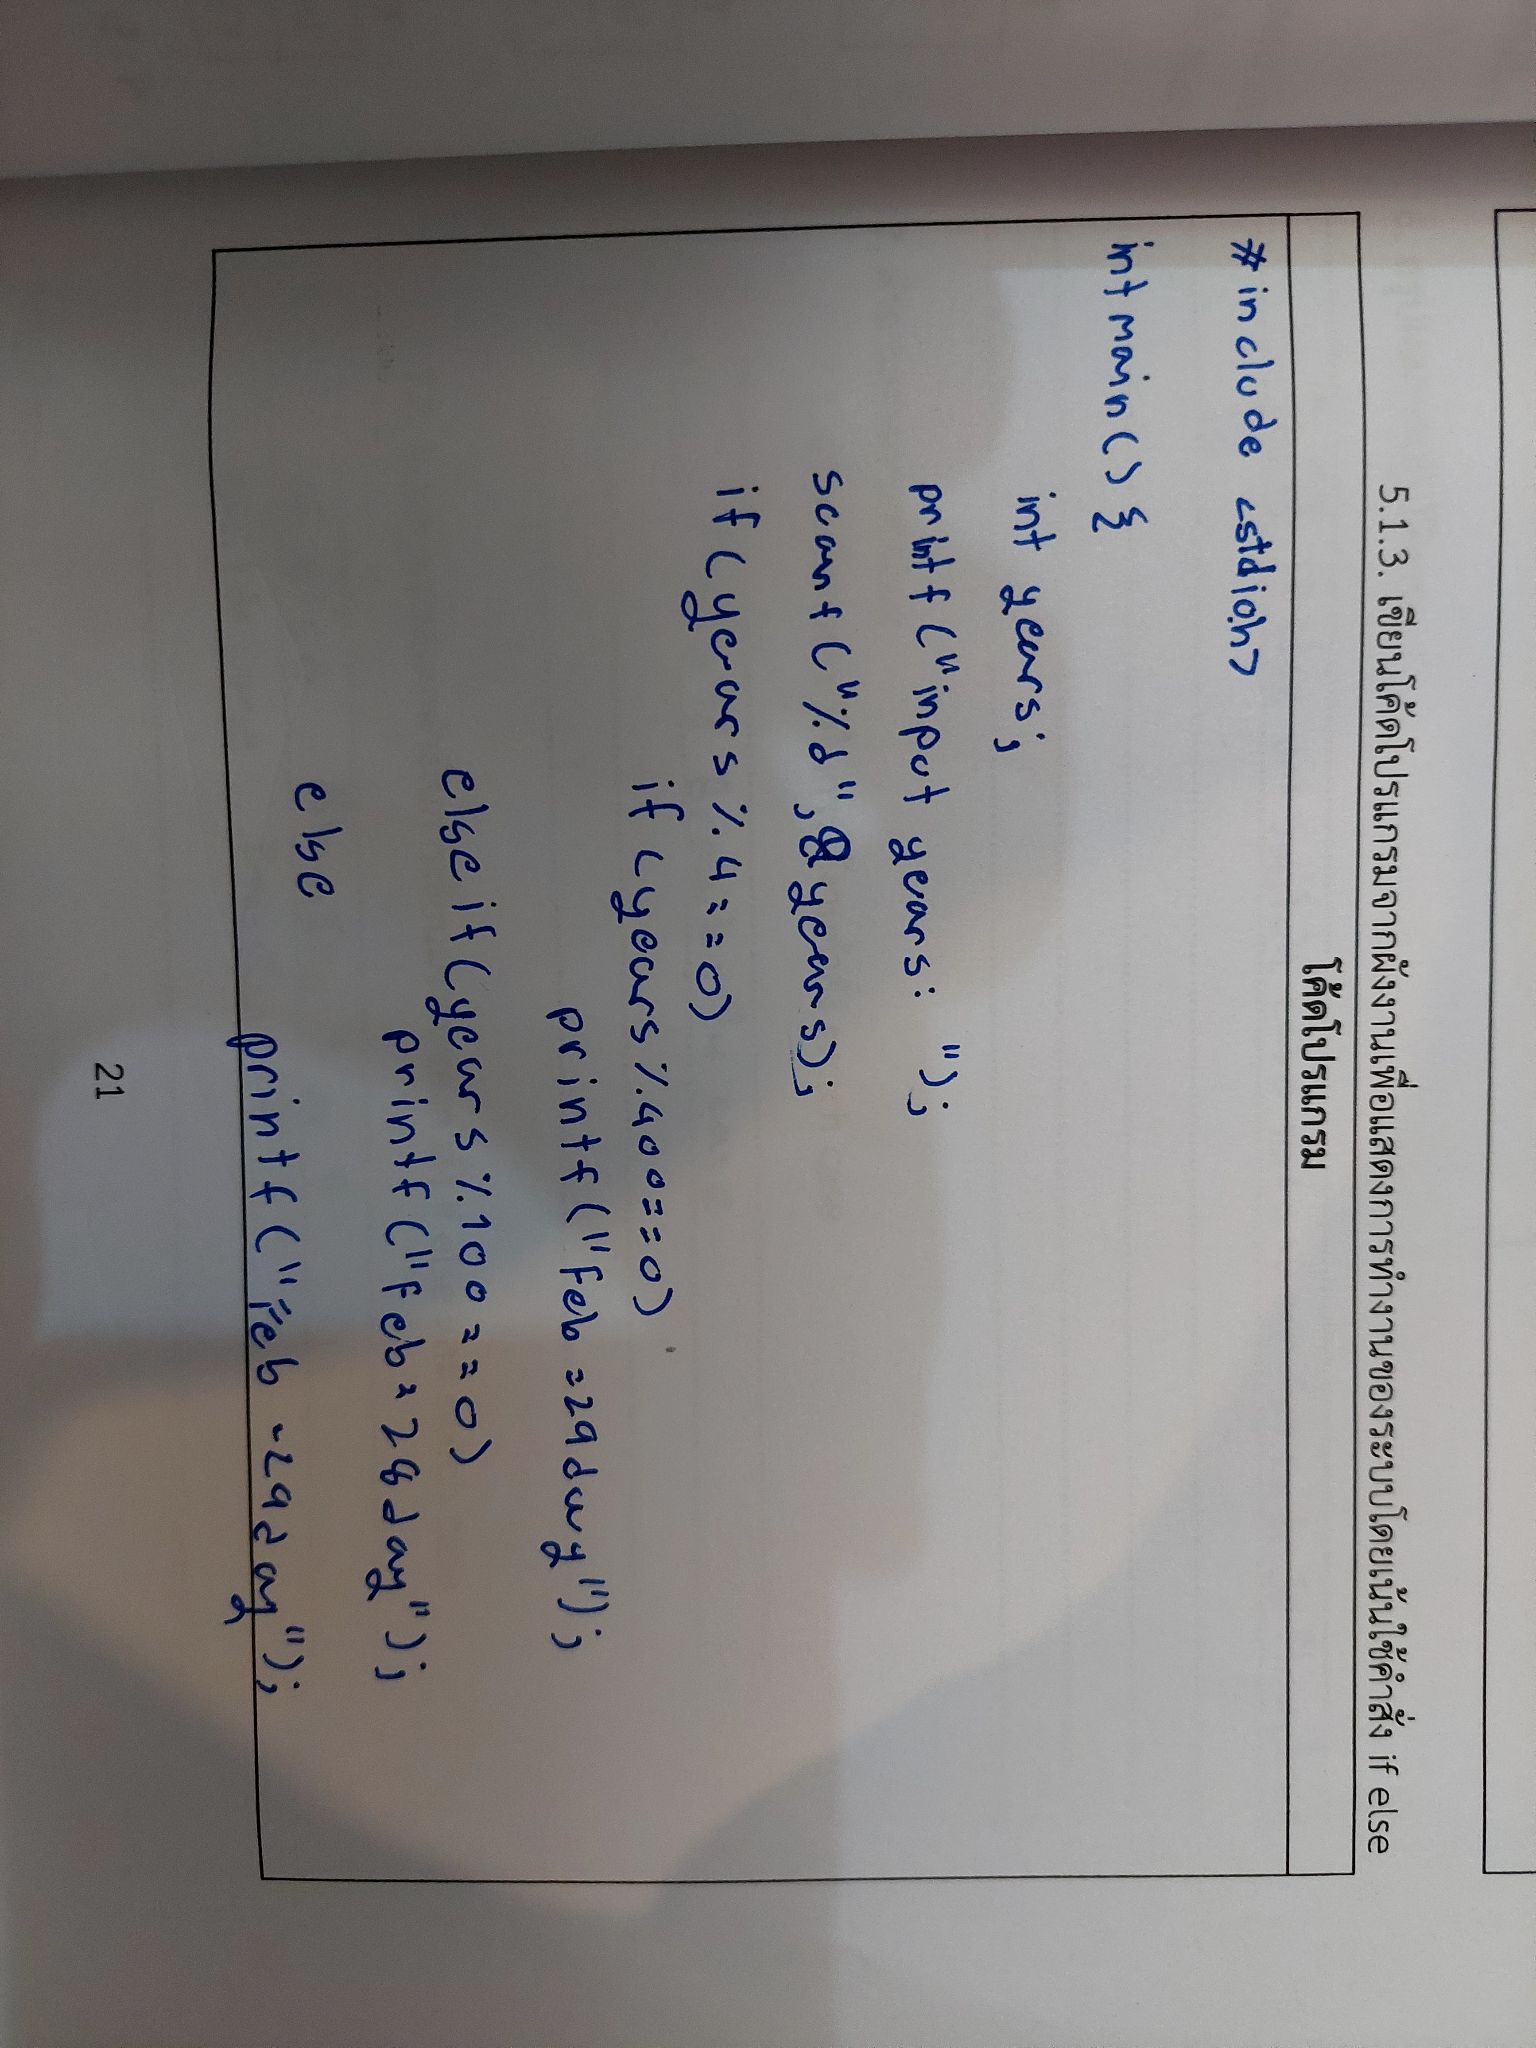 5.1.3. เขียนโค้ดโปรแกรมจากผังงานเพื่อแสดงการทำงานของระบบโดยเน้นใช้คำสั่ง if else
โค้ดโปรแกรม
#include <stdio.h>
int main() {
int years;
printf("input years: ");
scanf("%d",&years);
if(years%4==0)
if(years%400==0)
printf("Feb=29day");
else if(years%100==0)
printf("Feb=28day");
else
printf("Feb=29day");
21